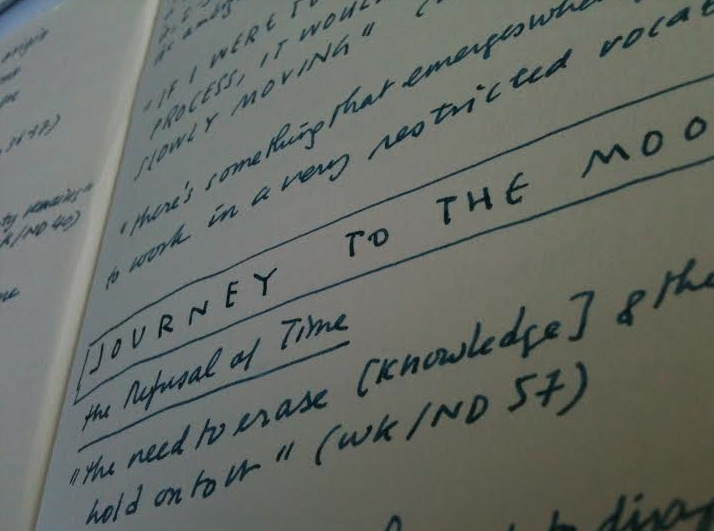 "IF I WERE TO
PROCESS, IT WOUL
SLOWLY MOVING" (
"there's something that emerges when
to work in a very restricted vocab
JOURNEY TO THE MOO
the Refusal of Time
"the need to erase [knowledge] & the
hold on to it" (WK/ND 57)
to disap